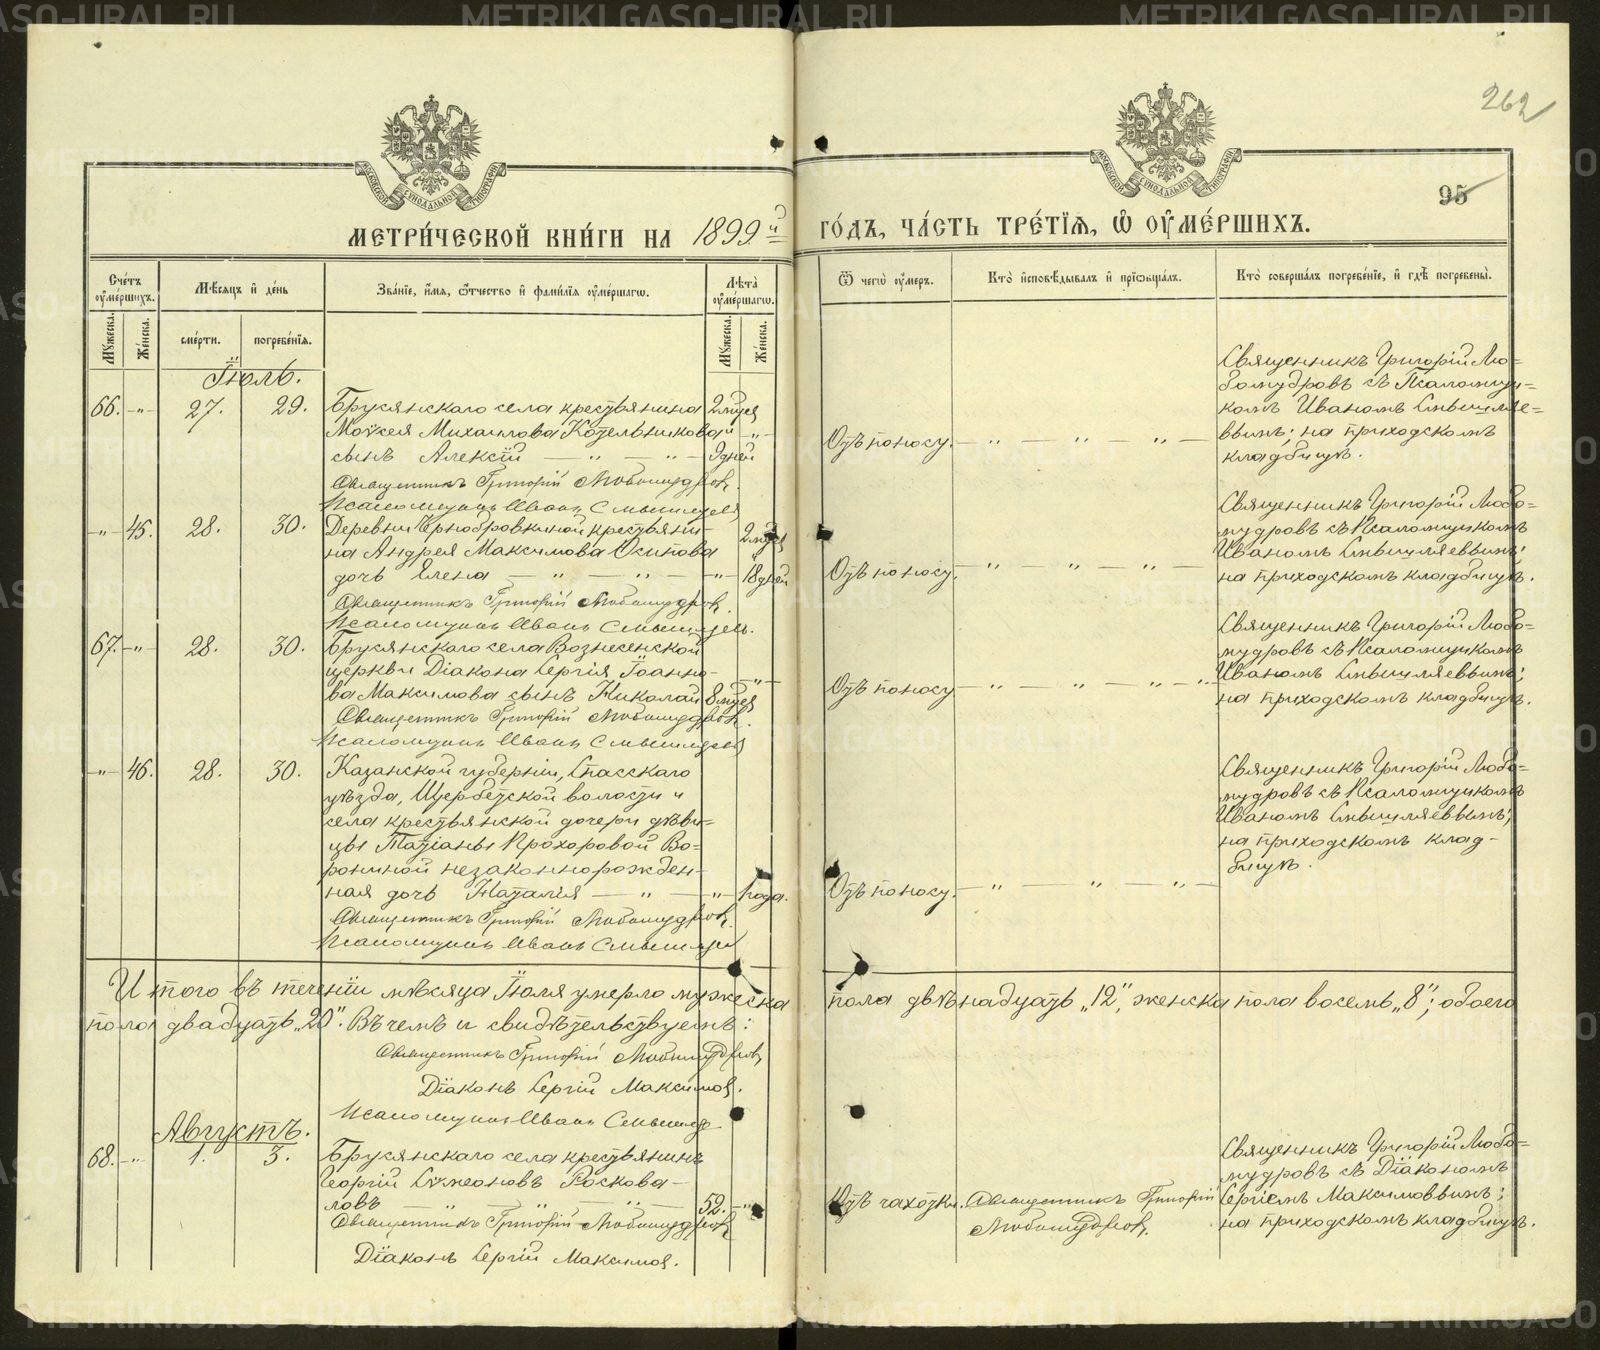 METRIKI.GASO-URAL.RU
262
95
МЕТРИ́ЧЕСКОЙ КНИ́ГИ НА 1899й ГО́ДЪ, ЧА́СТЬ ТРЕ́ТІѦ, Ѡ҆ ОУ҆МЕ́РШИХЪ.
Сче́тъ оу҆ме́ршихъ.
Мѣ́сяцъ и҆ де́нь
Зва́ніе, и҆́мя, ѻ҆́тчество и҆ фами́лія оу҆ме́ршагѡ.
Лѣ́та оу҆ме́ршагѡ.
Ѿ чегѡ̀ оу҆́меръ.
Кто̀ и҆сповѣ́дывалъ и҆ прїѡбща́лъ.
Кто̀ соверша́лъ погребе́ніе, и҆ гдѣ̀ погребены̀.
Мꙋ́жеска.
Же́нска.
сме́рти.
погребе́нія.
Мꙋ́жеска.
Же́нска.
Іюль.
66. -"- 27. 29.
Брусянскаго села крестьянина
Моѵсея Михаилова Котельникова
сынъ Алексій — " — " —
2 мѣс.
9 дней
Священникъ Григорій Любомудровъ.
Псаломщикъ Иванъ Смышляевъ
Отъ поносу. — " — " — " —
Священникъ Григорій Лю-
бомудровъ съ Псаломщи-
комъ Иваномъ Смышляе-
вымъ; на приходскомъ
кладбищѣ.
-"- 45. 28. 30.
Деревни Чернобровкиной крестьяни-
на Андрея Максимова Осипова
дочь Елена — " — " — -"-
2 мѣс.
18 дней
Священникъ Григорій Любомудровъ.
Псаломщикъ Иванъ Смышляевъ.
Отъ поносу. — " — " — " —
Священникъ Григорій Любо-
мудровъ съ Псаломщикомъ
Иваномъ Смышляевымъ;
на приходскомъ кладбищѣ.
67. -"- 28. 30.
Брусянскаго села Вознесенской
церкви Діакона Сергія Іоанно-
ва Максимова сынъ Николай
8 мѣс.
Священникъ Григорій Любомудровъ.
Псаломщикъ Иванъ Смышляевъ
Отъ поносу — " — " — " —
Священникъ Григорій Любо-
мудровъ съ Псаломщикомъ
Иваномъ Смышляевымъ;
на приходскомъ кладбищѣ.
-"- 46. 28. 30.
Казанской губерніи, Спасскаго
уѣзда, Щербетской волости и
села крестьянской дочери дѣви-
цы Татіаны Прохоровой Во-
рониной незаконнорожден-
ная дочь Наталія — " — -"- 1 года.
Священникъ Григорій Любомудровъ.
Псаломщикъ Иванъ Смышляевъ
Отъ поносу. — " — " — " —
Священникъ Григорій Любо-
мудровъ съ Псаломщикомъ
Иваномъ Смышляевымъ;
на приходскомъ клад-
бищѣ.
Итого въ теченіи мѣсяца Іюля умерло мужеска пола двѣнадцать „12", женска пола восемь „8"; обоего
пола двадцать „20". Въ чемъ и свидѣтельствуемъ:
Священникъ Григорій Любомудровъ,
Діаконъ Сергій Максимов.
Псаломщикъ Иванъ Смышляев
Августъ.
68. -"- 1. 3.
Брусянскаго села крестьянинъ
Георгій Сѵмеоновъ Роскова-
ловъ — " — " — " — 52. -"-
Священникъ Григорій Любомудровъ
Діаконъ Сергій Максимов.
Отъ чахотки.
Священникъ Григорій
Любомудровъ.
Священникъ Григорій Любо-
мудровъ съ Діакономъ
Сергіемъ Максимовымъ;
на приходскомъ кладбищѣ.
METRIKI.GASO-URAL.RU